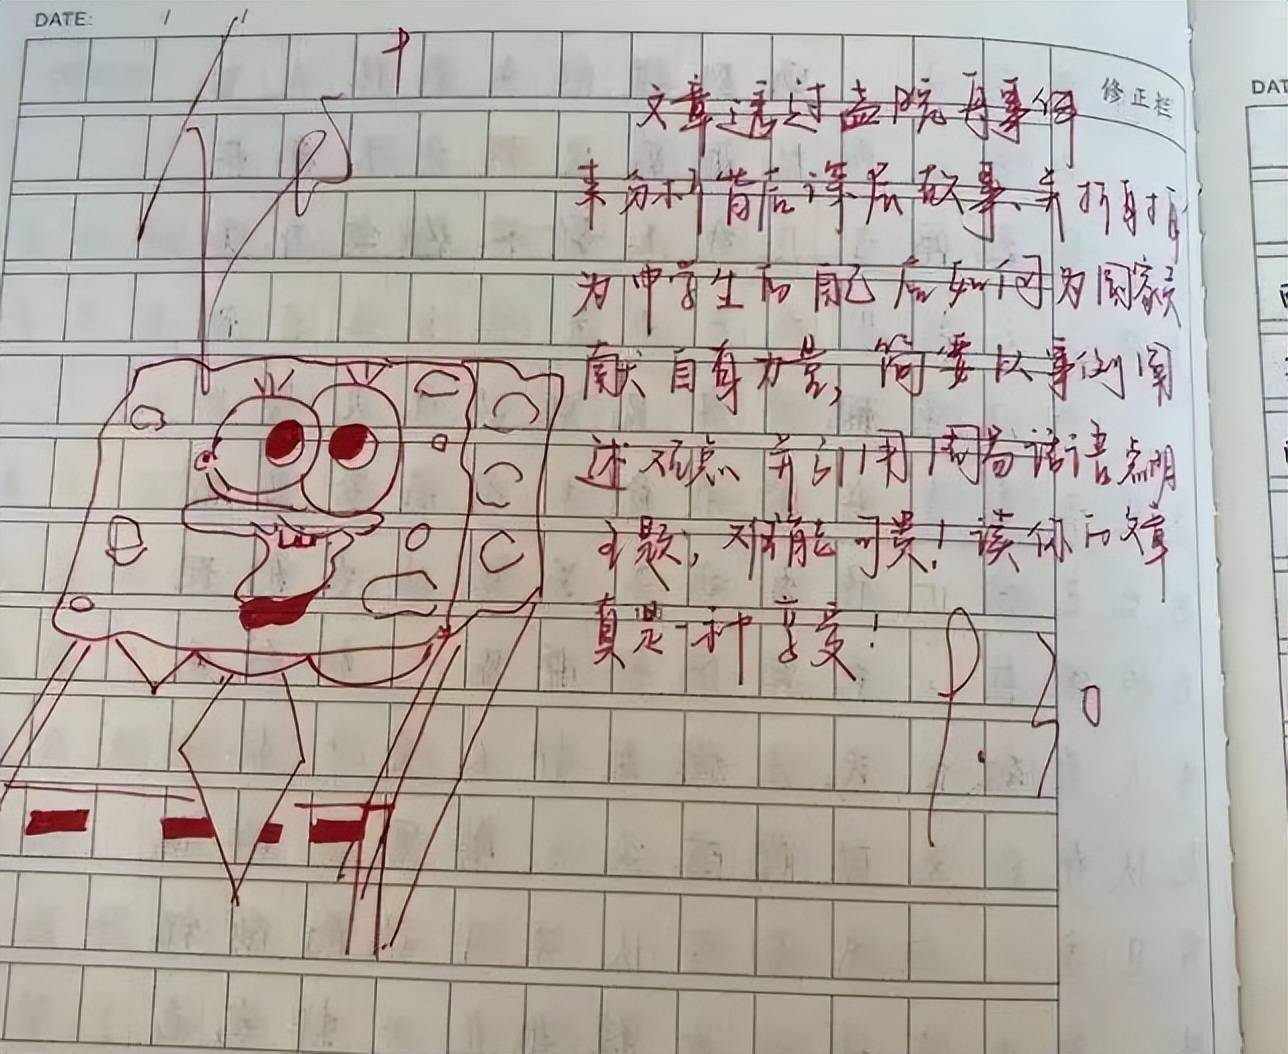 DATE: / /
修正栏
文章透过孟晚舟事件
来分析背后深层故事,并折射作
为中学生的自己应如何为国家贡
献自身力量,简要以事例阐
述观点,并引用周易话语点明
主题,难能可贵!读你的文章
真是一种享受!
DAT